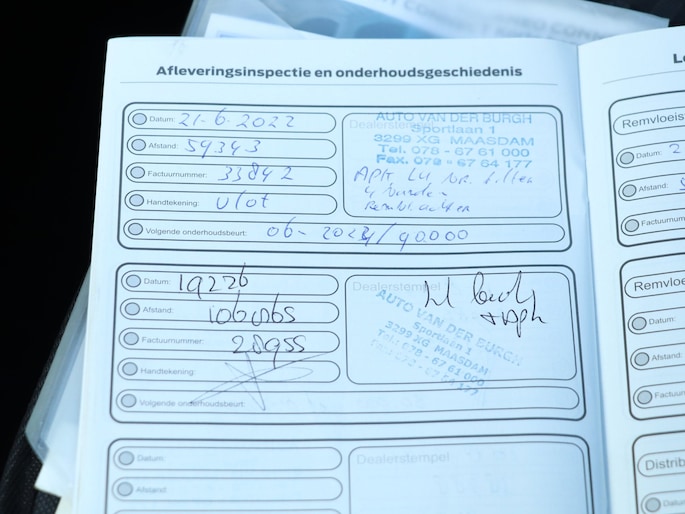 Afleveringsinspectie en onderhoudsgeschiedenis
Datum: 21-6-2022
Afstand: 54343
Factuurnummer: 33842
Handtekening: Vlot
Volgende onderhoudsbeurt: 06-2024/90.000
AUTO VAN DER BURGH
Sportlaan 1
3299 XG MAASDAM
Tel. 078 - 67 61 000
Fax. 078 - 67 64 177
APK
4 banden
Datum:
Afstand:
Factuurnummer: 28955
Handtekening:
Volgende onderhoudsbeurt:
Dealerstempel
+ apk
AUTO VAN DER BURGH
Sportlaan 1
3299 XG MAASDAM
Tel. 078 - 67 61 000
Datum:
Afstand
Dealerstempel
Remvloeis
Datum: 2
Afstand:
Factuurnumm
Remvloei
Datum:
Afstand:
Factuurn
Distrib
Datum